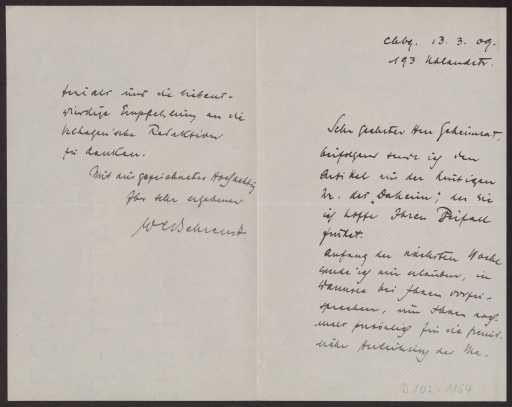 Chbg. 13. 3. 09.
193 Uhlandstr.
Sehr geehrter Herr Geheimrat,
beifolgend sende ich den
Artikel in der heutigen
Nr. des "Daheim", der wie
ich hoffe Ihren Beifall
findet.
Anfang der nächsten Woche
werde ich mir erlauben, in
Wannsee bei Ihnen vorzu-
sprechen, um Ihnen noch-
mals persönlich für die freund-
liche Überlassung der Ma-
terials und die liebens-
würdige Empfehlung an die
Velhagen'sche Redaktion
zu danken.
Mit ausgezeichneter Hochachtg
Ihr sehr ergebener
W C Behrendt
D 102 1154